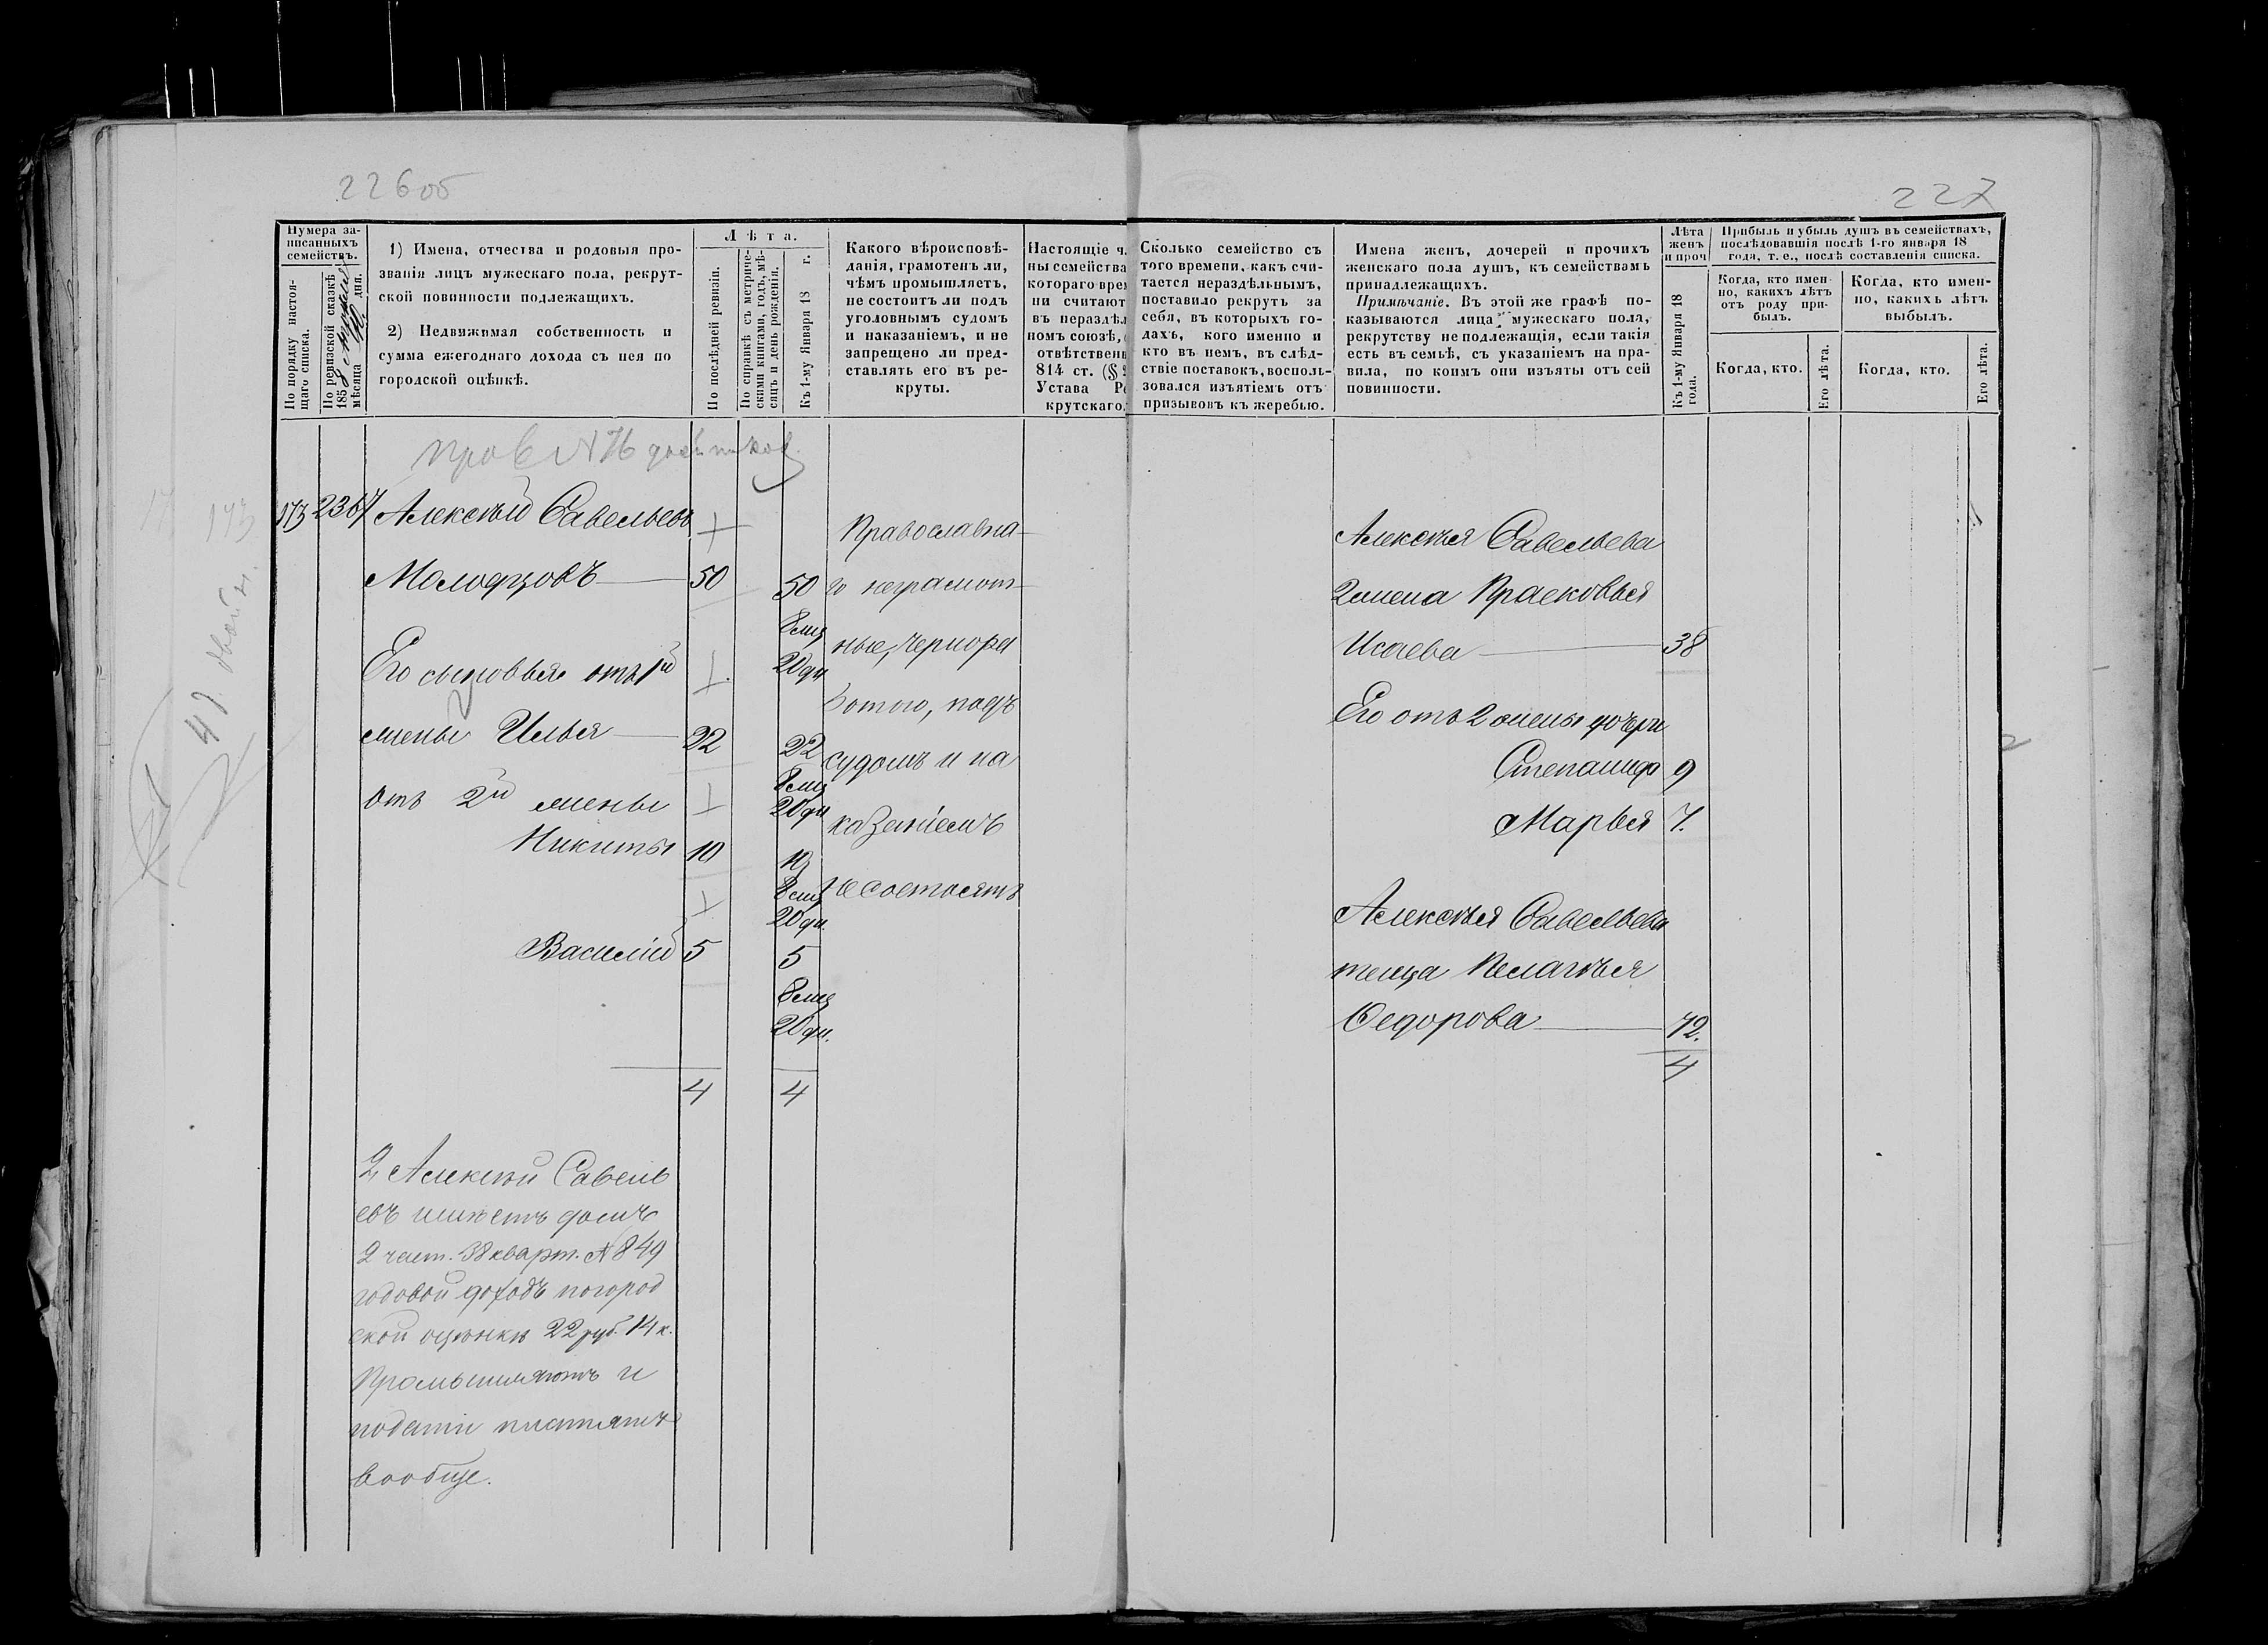 226об
227
Нумера за-
писанныхъ
семействъ.
По порядку настоя-
щаго списка.
По ревизской сказкѣ
1858
мѣсяца дня.
1) Имена, отчества и родовыя про-
званія лицъ мужескаго пола, рекрут-
ской повинности подлежащихъ.
2) Недвижимая собственность и
сумма ежегоднаго дохода съ нея по
городской оцѣнкѣ.
Лѣта.
По послѣдней ревизіи.
По справкѣ съ метриче-
скими книгами, годъ, мѣ-
сяцъ и день рожденія.
Къ 1-му Января 18 г.
Какого вѣроисповѣ-
данія, грамотенъ ли,
чѣмъ промышляетъ,
не состоитъ ли подъ
уголовнымъ судомъ
и наказаніемъ, и не
запрещено ли пред-
ставлять его въ ре-
круты.
Настоящіе ч
ны семейства
котораго вре
ни считают
въ нераздѣл
номъ союзѣ,
отвѣтствен
814 ст. (§
Устава Ре
крутскаго.
Сколько семейство съ
того времени, какъ счи-
тается нераздѣльнымъ,
поставило рекрутъ за
себя, въ которыхъ го-
дахъ, кого именно и
кто въ немъ, въ слѣд-
ствіе поставокъ, восполь-
зовался изъятіемъ отъ
призывовъ къ жеребью.
Имена женъ, дочерей и прочихъ
женскаго пола душъ, къ семействамъ
принадлежащихъ.
Примѣчаніе. Въ этой же графѣ по-
казываются лица мужескаго пола,
рекрутству не подлежащія, если такія
есть въ семьѣ, съ указаніемъ на пра-
вила, по коимъ они изъяты отъ сей
повинности.
Лѣта
женъ
и проч
Къ 1-му Января 18
года.
Прибыль и убыль душъ въ семействахъ,
послѣдовавшія послѣ 1-го января 18
года, т. е., послѣ составленія списка.
Когда, кто имен-
но, какихъ лѣтъ
отъ роду при-
былъ.
Когда, кто имен-
но, какихъ лѣтъ
выбылъ.
Когда, кто.
Его лѣта.
Когда, кто.
Его лѣта.
173
173 2367 Алексѣй Савельевъ
Молодзовъ 50 50
8 мц
20 дн
Его сыновья отъ 1й
жены Илья 22 22
8 мц
20 дн
отъ 2й жены
Никита 10 10
8 мц
20 дн.
Василій 5 5
8 мц
20 дн.
4 4
Православна-
го неграмот-
ные, чернора
ботою, подъ
судомъ и на
казаніемъ
не состоятъ
2, Алексѣй Савель
евъ имѣетъ домъ
2 част. 38 кварт. № 849
годовой доходъ погород
ской оцѣнкѣ 22 руб. 14 к.
Промышляютъ и
подати платятъ
вообще.
Алексѣя Савельева
2 жена Прасковья
Исаева 38
Его отъ 2 жены дочери
Степанида 9
Марья 7.
Алексѣя Савельева
теща Пелагѣя
Федорова 72.
4